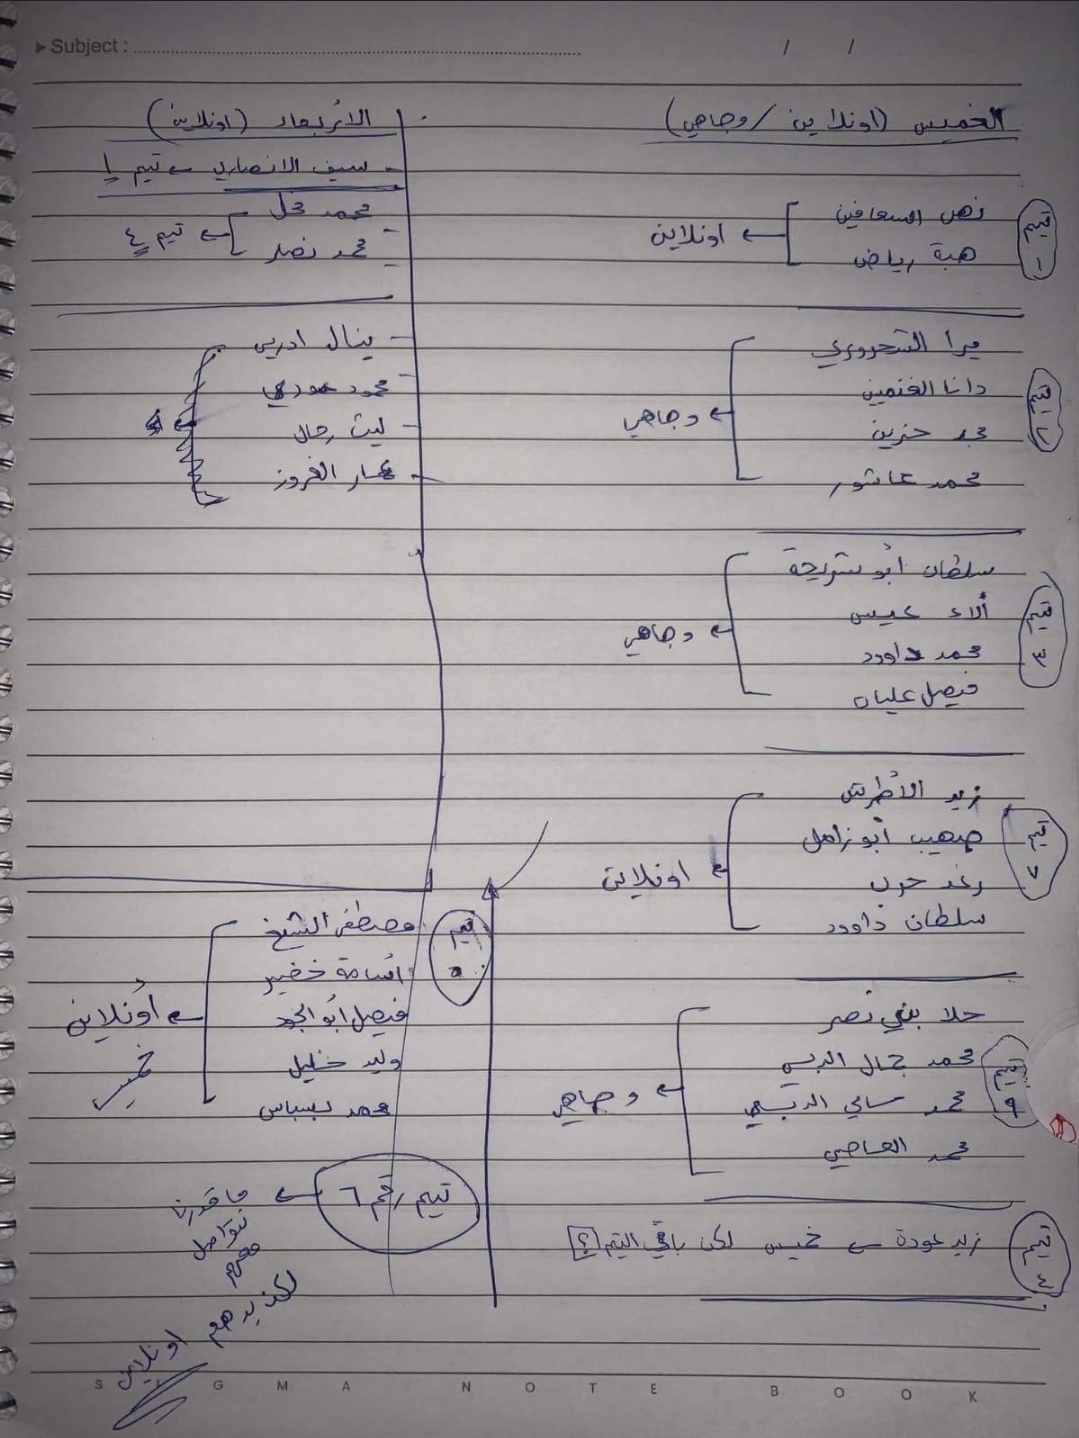 Subject :
/ /
الخميس (اونلاين / وجاهي)
تيم ١
نهى السعافين
هبة رياض
← اونلاين
تيم ٢
ميرا التحروري
دانا الغنمين
مجد حنرين
محمد عاشور
← وجاهي
تيم ٣
سلطان أبو شريحة
ألاء عيسى
محمد داوود
فيصل عليان
← وجاهي
تيم ٧
زيد الأطرش
صهيب أبو زاهل
رغد حرب
سلطان داوود
← اونلاين
تيم ٩
حلا بني نصر
محمد جمال الدبسي
محمد سامي الدبسي
محمد العاصي
← وجاهي
تيم ٤
زيد عودة ← خميس لكن باقي التيم [؟]
الأربعاء (اونلاين)
- سيف الانصاري ← تيم ١
- محمد نحل
- محمد نصار
← تيم ٤
- ينال ادريس
- محمود
- ليث رحال
- عمار الفروز
تيم ٥
مصطفى الشيخ
أسامة خضير
فيصل أبو الجود
وليد خليل
محمد بسباس
← أونلاين
خميس
تيم رقم ٦ ← ما قدرنا
نتواصل
معهم
لكن بدهم اونلاين
SIGMA NOTE BOOK